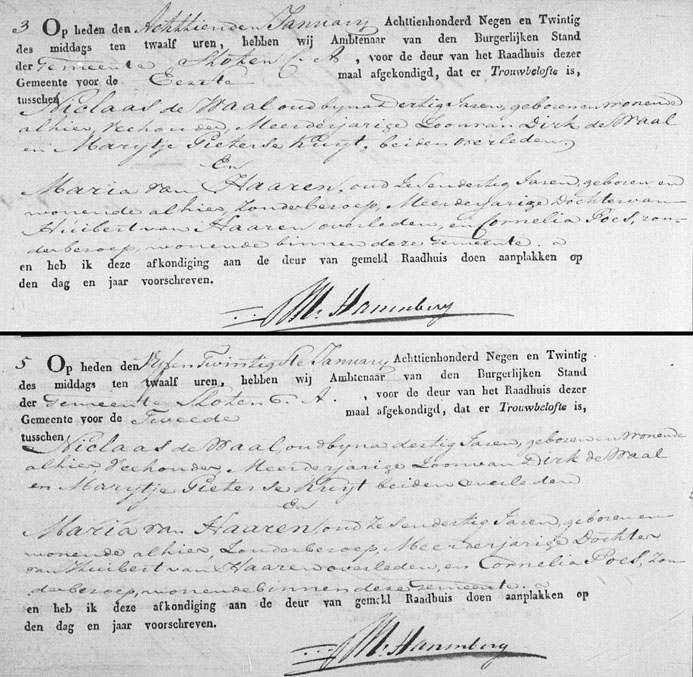 3 Op heden den Achttienden January Achttienhonderd Negen en Twintig
des middags ten twaalf uren, hebben wij Ambtenaar van den Burgerlijken Stand
der Gemeente Schoten C. A. , voor de deur van het Raadhuis dezer
Gemeente voor de Eerste maal afgekondigd, dat er Trouwbelofte is,
tusschen Niclaas de Waal oud byna dertig Jaren, geboren en wonende
alhier, Veehouder, Meerderjarige Zoon van Dirk de Waal
en Marytje Pieterse Kruyt, beiden overleden,
En
Maria van Haaren, oud Zesendertig Jaren, geboren en
wonende alhier, Zonder beroep, Meerderjarige Dochter van
Huibert van Haaren overleden, en Cornelia Poes, zon-
der beroep, wonende binnen deze Gemeente.
en heb ik deze afkondiging aan de deur van gemeld Raadhuis doen aanplakken op
den dag en jaar voorschreven.
5 Op heden den Vyfentwintigste January Achttienhonderd Negen en Twintig
des middags ten twaalf uren, hebben wij Ambtenaar van den Burgerlijken Stand
der Gemeente Schoten C. A. , voor de deur van het Raadhuis dezer
Gemeente voor de Tweede maal afgekondigd, dat er Trouwbelofte is,
tusschen Niclaas de Waal, oud byna dertig Jaren, geboren en wonende
alhier Veehouder, Meerderjarige Zoon van Dirk de Waal
en Marytje Pieterse Kruyt beiden overleden
En
Maria van Haaren, oud Zesendertig Jaren, geboren en
wonende alhier, Zonder beroep, Meerderjarige Dochter
van Huibert van Haaren overleden, en Cornelia Poes, Zon
der beroep, wonende binnen deze Gemeente.
en heb ik deze afkondiging aan de deur van gemeld Raadhuis doen aanplakken op
den dag en jaar voorschreven.